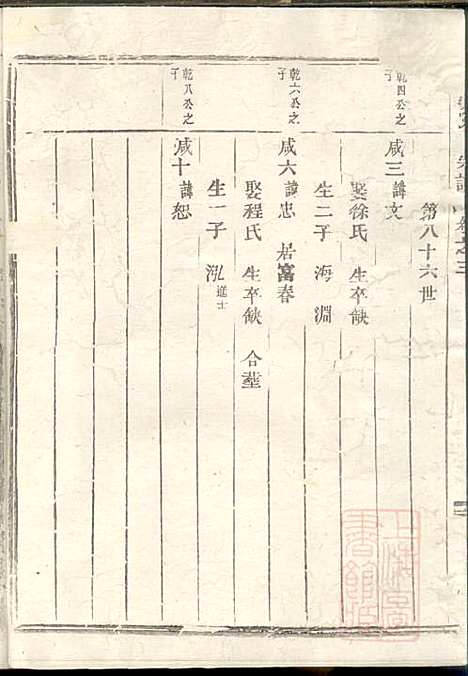 宗譜 卷之三
第八十六世
乾四公之子
咸三 諱文
娶徐氏 生卒缺
生二子 海 淵
乾六公之子
咸六 諱忠 居富春
娶程氏 生卒缺 合塟
生一子 泓 進士
乾八公之子
咸十 諱恕
上海圖書館藏